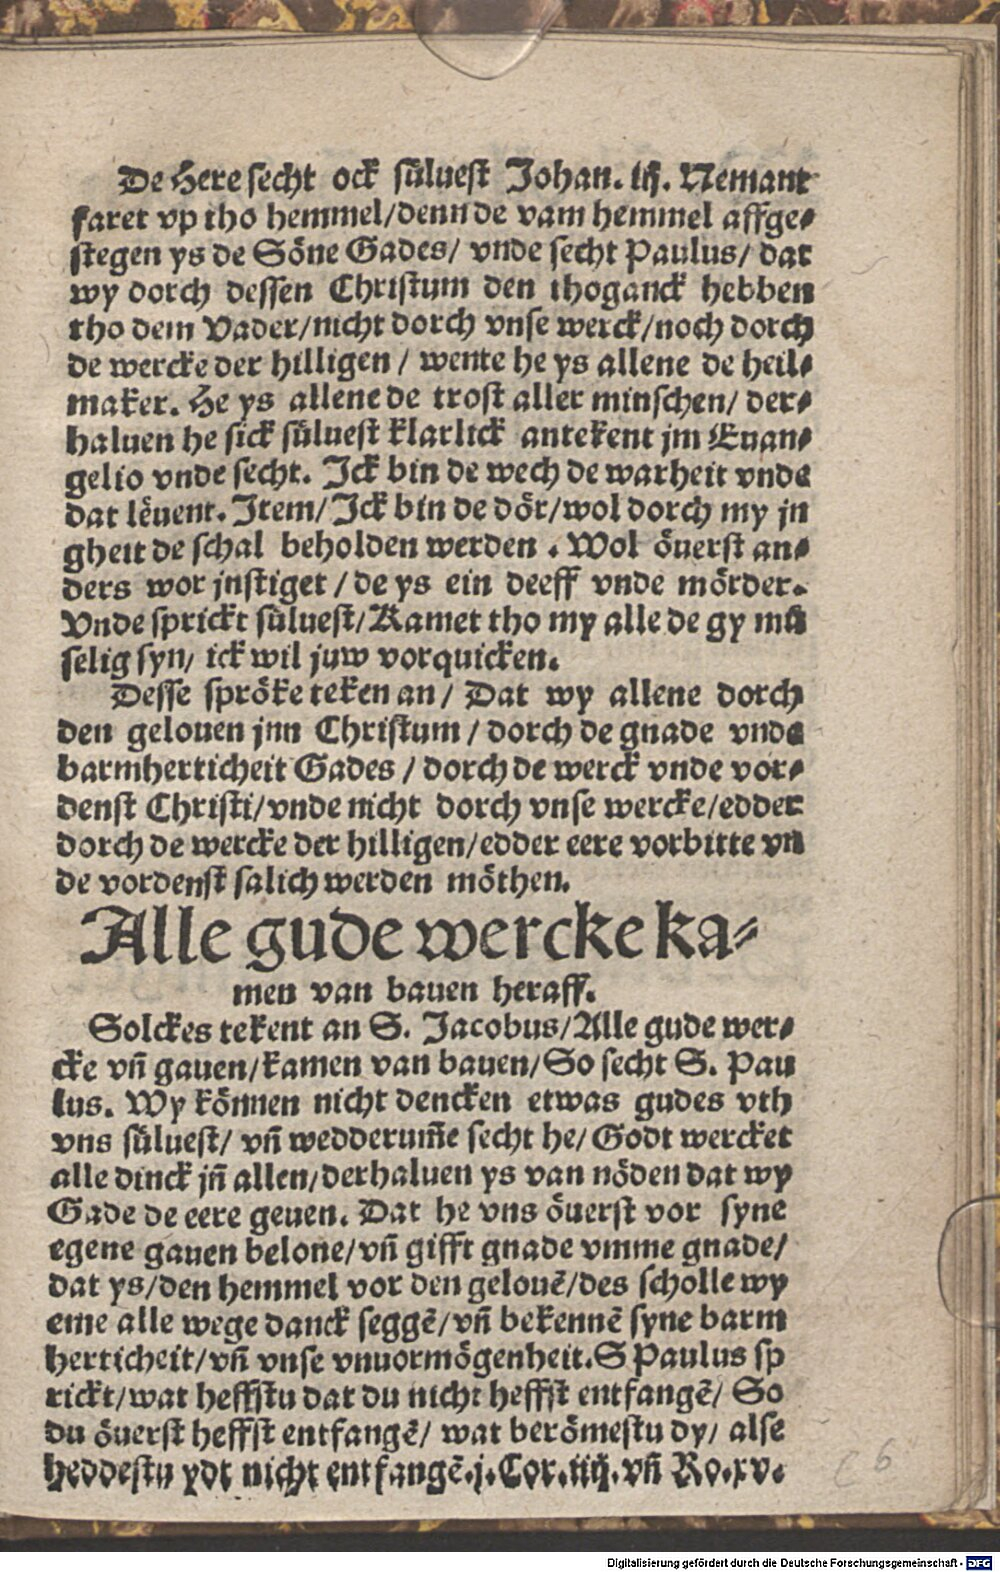 De Here secht ock sülvest Johan. iij. Nemant
faret vp tho hemmel/denn de vam hemmel affge⸗
stegen ys de Söne Gades/ vnde secht Paulus/ dat
wy dorch dessen Christum den thoganck hebben
tho dem Vader/nicht dorch vnse werck/noch dorch
de wercke der hilligen / wente he ys allene de heil⸗
maker. He ys allene de trost aller minschen/ der⸗
haluen he sick süluest klarlick antekent jm Euan⸗
gelio vnde secht. Ick bin de wech de warheit vnde
dat lëuent. Item/ Ick bin de dör/wol dorch my jn
gheit de schal beholden werden . Wol öuerst an⸗
ders wor jnstiget / de ys ein deeff vnde mörder.
Vnde sprickt süluest/ Kamet tho my alle de gy mü
selig syn/ ick wil juw vorquicken.
Desse spröke teken an/ Dat wy allene dorch
den gelouen jnn Christum / dorch de gnade vnde
barmherticheit Gades / dorch de werck vnde vor⸗
denst Christi/vnde nicht dorch vnse wercke/edder
dorch de wercke der hilligen/edder eere vorbitte vn
de vordenst salich werden möthen.
Alle gude wercke ka⸗
men van bauen heraff.
Solckes tekent an S. Jacobus/Alle gude wer⸗
cke vñ gauen/kamen van bauen/So secht S. Pau
lus. Wy können nicht dencken etwas gudes vth
vns süluest/ vñ wedderum̄e secht he/ Godt wercket
alle dinck jñ allen/derhaluen ys van nöden dat wy
Gade de eere geuen. Dat he vns öuerst vor syne
egene gauen belone/vñ gifft gnade vmme gnade/
dat ys/den hemmel vor den gelouē/des scholle wy
eme alle wege danck seggē/vñ bekennē syne barm
herticheit/vñ vnse vnuormögenheit. S Paulus sp
rickt/wat heffstu dat du nicht heffst entfangē/ So
du öuerst heffst entfangē/ wat berömestu dy/ alse
heddestu ydt nicht entfangē.j.Cor.iiij.vñ Ro.xv.
C 6
Digitalisierung gefördert durch die Deutsche Forschungsgemeinschaft - DFG